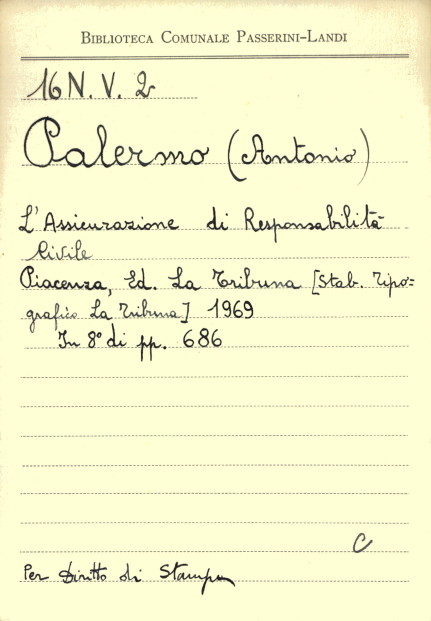 BIBLIOTECA COMUNALE PASSERINI-LANDI
16 N. V. 2
Palermo (Antonio)
L'Assicurazione di Responsabilità
Civile
Piacenza, Ed. La Tribuna [Stab. Tipo=
grafico La Tribuna] 1969
In 8° di pp. 686
C
Per Diritto di Stampa